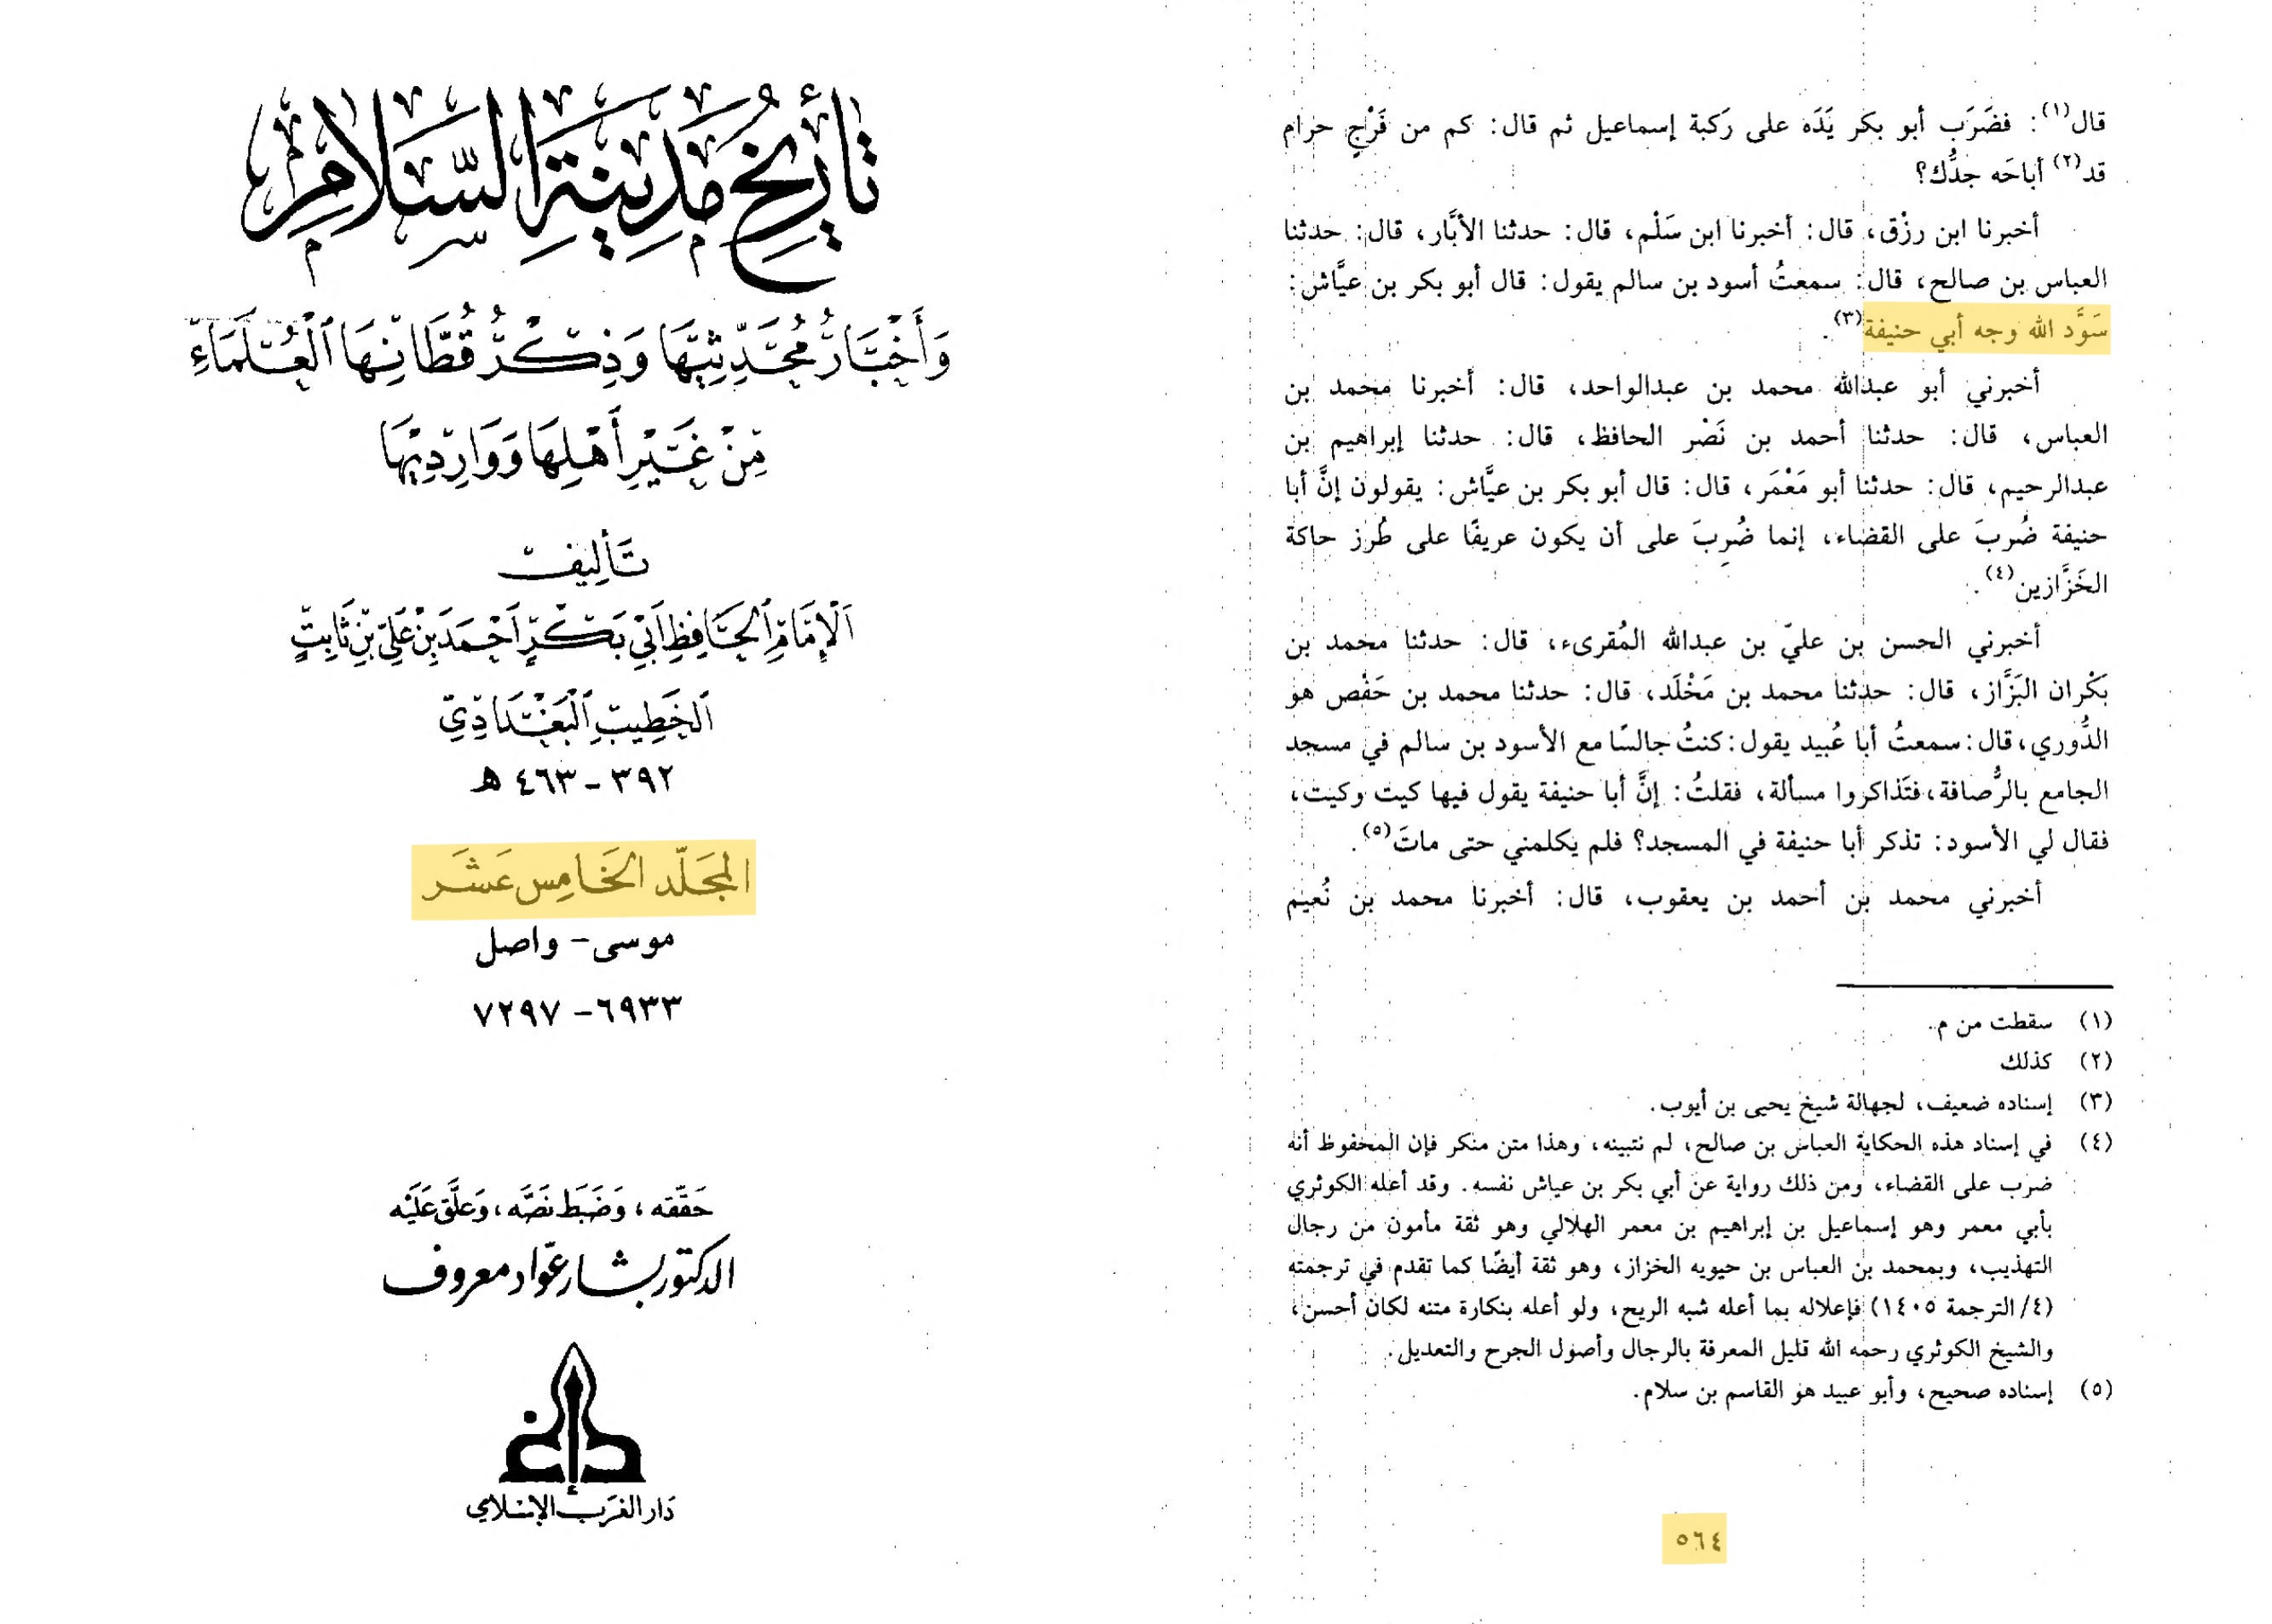 تأريخ مدينة السلام
وَأَخْبَارُ مُحَدِّثِيهَا وَذِكْرُ قُطَّانِهَا ٱلْعُلَمَاءِ
مِنْ غَيْرِ أَهْلِهَا وَوَارِدِيهَا
تأليف
ٱلإِمَامِ ٱلْحَافِظِ أَبِي بَكْرٍ أَحْمَدَ بْنِ عَلِيِّ بْنِ ثَابِتٍ
ٱلْخَطِيبِ ٱلْبَغْدَادِيِّ
٣٩٢ - ٤٦٣ هـ
المجَلّد الخَامِس عَشَر
موسى - واصل
٦٩٣٣ - ٧٢٩٧
حَقّقه، وَضَبَط نَصَّه، وَعلَّق عَلَيْه
الدكتور بشار عوّاد معروف
دَار الغَرب الإسْلامي
قال(١): فضَرَب أبو بكر يَدَه على رَكبة إسماعيل ثم قال: كم من فَرْجٍ حرام
قد(٢) أباحَه جدُّك؟
أخبرنا ابن رزْق، قال: أخبرنا ابن سَلْم، قال: حدثنا الأبَّار، قال: حدثنا
العباس بن صالح، قال: سمعتُ أسود بن سالم يقول: قال أبو بكر بن عيَّاش:
سَوَّد الله وجه أبي حنيفة(٣).
أخبرني أبو عبدالله محمد بن عبدالواحد، قال: أخبرنا محمد بن
العباس، قال: حدثنا أحمد بن نَصْر الحافظ، قال: حدثنا إبراهيم بن
عبدالرحيم، قال: حدثنا أبو مَعْمَر، قال: قال أبو بكر بن عيَّاش: يقولون إنَّ أبا
حنيفة ضُربَ على القضاء، إنما ضُرِبَ على أن يكون عريفًا على طُرز حاكة
الخَزَّازين(٤).
أخبرني الحسن بن عليّ بن عبدالله المُقرىء، قال: حدثنا محمد بن
بَكْران البَزَّاز، قال: حدثنا محمد بن مَخْلَد، قال: حدثنا محمد بن حَفْص هو
الدُّوري، قال: سمعتُ أبا عُبيد يقول: كنتُ جالسًا مع الأسود بن سالم في مسجد
الجامع بالرُّصافة، فتَذاكروا مسألة، فقلتُ: إنَّ أبا حنيفة يقول فيها كيت وكيت،
فقال لي الأسود: تذكر أبا حنيفة في المسجد؟ فلم يكلمني حتى ماتَ(٥).
أخبرني محمد بن أحمد بن يعقوب، قال: أخبرنا محمد بن نُعيم
(١) سقطت من م.
(٢) كذلك
(٣) إسناده ضعيف، لجهالة شيخ يحيى بن أيوب.
(٤) في إسناد هذه الحكاية العباس بن صالح، لم نتبينه، وهذا متن منكر فإن المحفوظ أنه
ضرب على القضاء، ومن ذلك رواية عن أبي بكر بن عياش نفسه. وقد أعله الكوثري
بأبي معمر وهو إسماعيل بن إبراهيم بن معمر الهلالي وهو ثقة مأمون من رجال
التهذيب، وبمحمد بن العباس بن حيويه الخزاز، وهو ثقة أيضًا كما تقدم في ترجمته
(٤/ الترجمة ١٤٠٥) فإعلاله بما أعله شبه الريح، ولو أعله بنكارة متنه لكان أحسن،
والشيخ الكوثري رحمه الله قليل المعرفة بالرجال وأصول الجرح والتعديل.
(٥) إسناده صحيح، وأبو عبيد هو القاسم بن سلام.
٥٦٤